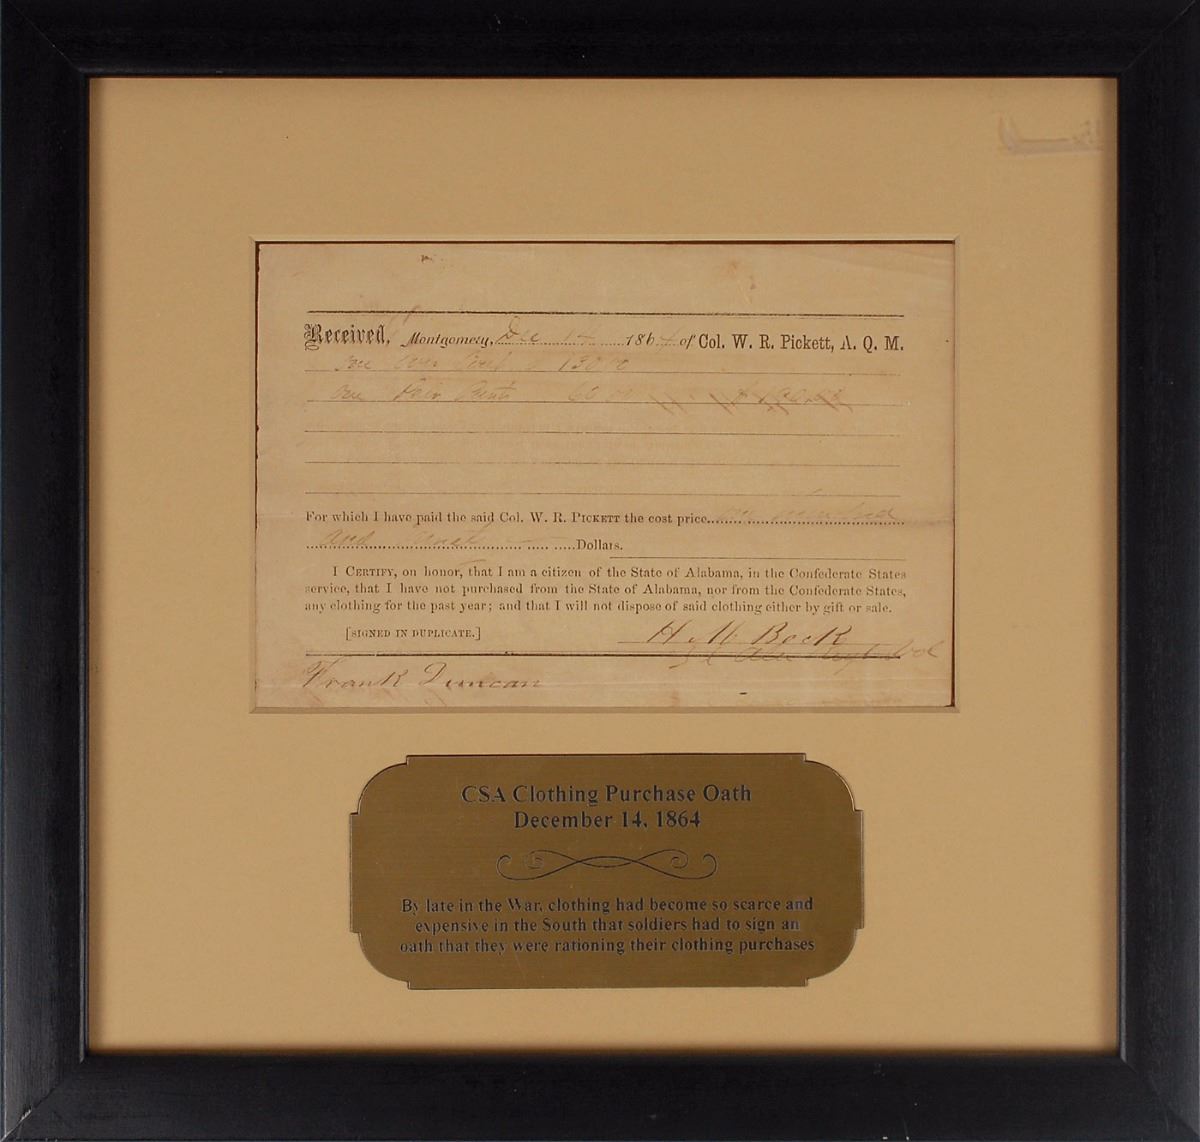 Received, Montgomery, Dec 14 1864 of Col. W. R. Pickett, A. Q. M.
one Over Coat 130 00
one Pair Pants 60 00 $190.00
For which I have paid the said Col. W. R. PICKETT the cost price one hundred
and Ninety Dollars.
I CERTIFY, on honor, that I am a citizen of the State of Alabama, in the Confederate States
service, that I have not purchased from the State of Alabama, nor from the Confederate States,
any clothing for the past year; and that I will not dispose of said clothing either by gift or sale.
[SIGNED IN DUPLICATE.] H. M. Beck
Frank Duncan
CSA Clothing Purchase Oath
December 14, 1864
By late in the War, clothing had become so scarce and
expensive in the South that soldiers had to sign an
oath that they were rationing their clothing purchases